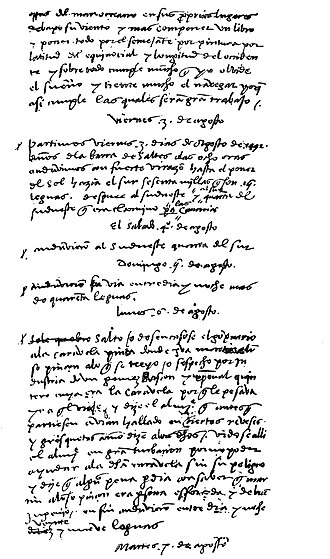 del mar oceano en sus proprios lugares
debaxo su viento y mas componer un libro
y poner todo por el semejante por pintura por
latitud del equinocial y longitud del occiden
te y sobre todo cumple mucho q yo olvide
el sueño y tiente mucho el navegar porq
asi cumple las quales seran gran trabajo /.
viernes .3. de agosto
partimos viernes .3. dias de agosto de
años de la barra de saltes a las ocho oras
anduvimos con fuerte virazo hasta el poner
del sol hazia el sur sesenta millas q son .15.
leguas. despues al sudueste y al sur quarta del
sudueste q era el camino para las canarias
El sabado .4. de agosto
anduvieron al sudueste quarta del sur
Domingo .5. de agosto.
anduvieron su via entre dia y noche mas
de quarenta leguas.
lunes .6. de agosto.
salto o desencasose el governario
a la caravela pinta donde yva martin
so pinçon a lo q se creyo o sospecho por in
dustria de un gomez rascon y xpoval quin
tero cuya era la caravela porq le pesava
yr a ql viaje / y dize el almi q antes q
partiesen avian hallado en ciertos reveses
y grisquetas como dizen a los dhos /. vidose alli
el almi en gran turbacion por no poder
ayudar a la dha caravela sin su peligro
y dize q alguna pena perdia con saber q mar
tin alonso pinçon era persona esforçada y de buen
ingenio / en fin anduvieron entre dia y noche
veynte y nueve leguas
Martes .7. de agosto